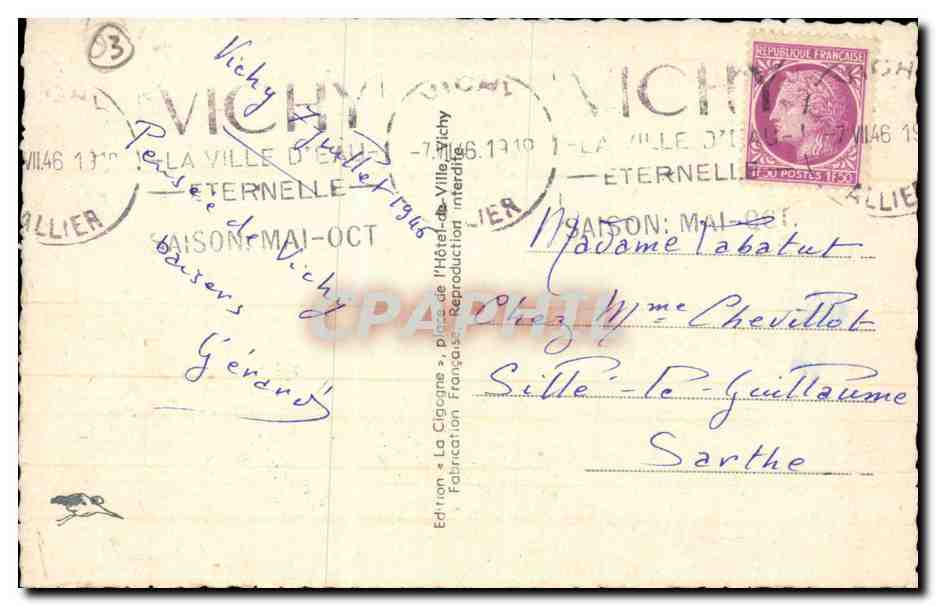 03
Vichy 7 Juillet 1946
Pensée de Vichy
baisers
Gérard
VICHY
LA VILLE D'EAU
ETERNELLE
SAISON: MAI-OCT
VII.46 19
ALLIER
VICHY
-7.VII.46.1919
ALLIER
VICHY
LA VILLE D'EAU
ETERNELLE
SAISON: MAI-OCT.
-7 VII.46 19
ALLIER
REPUBLIQUE FRANÇAISE
1F,50 POSTES 1F,50
Edition « La Cigogne », place de l'Hôtel-de-Ville, Vichy
Fabrication Française, Reproduction interdite
CPAPHIL
Madame Labatut
Chez Mme Chevillot
Sillé-le-Guillaume
Sarthe